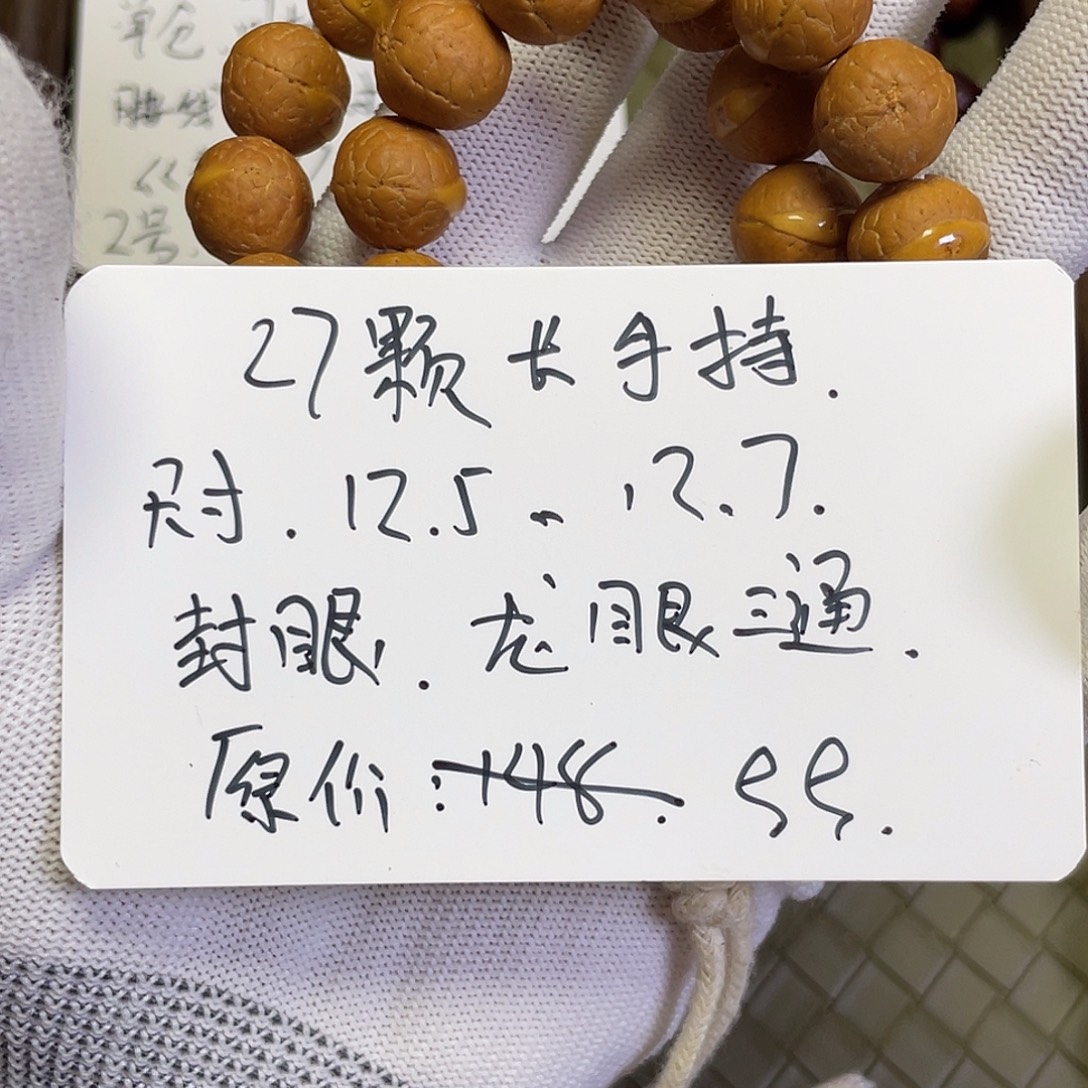 单仓
2号
27颗长手持.
尺寸.12.5-12.7.
封眼.龙眼三通.
原价:148.99.